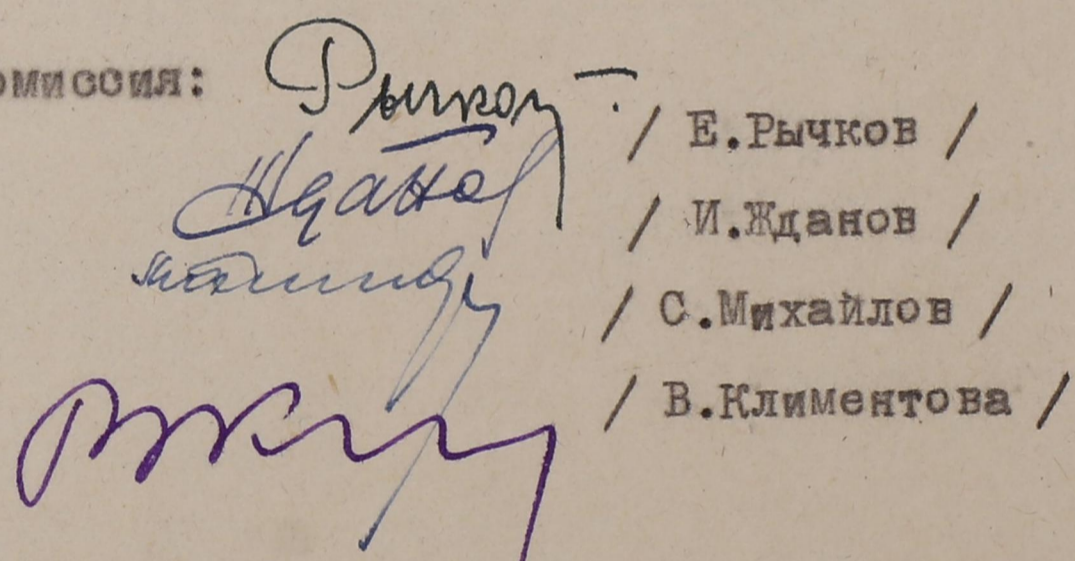 омиссия: Рычков
/ Е.Рычков /
Жданов
/ И.Жданов /
/ С.Михайлов /
/ В.Климентова /